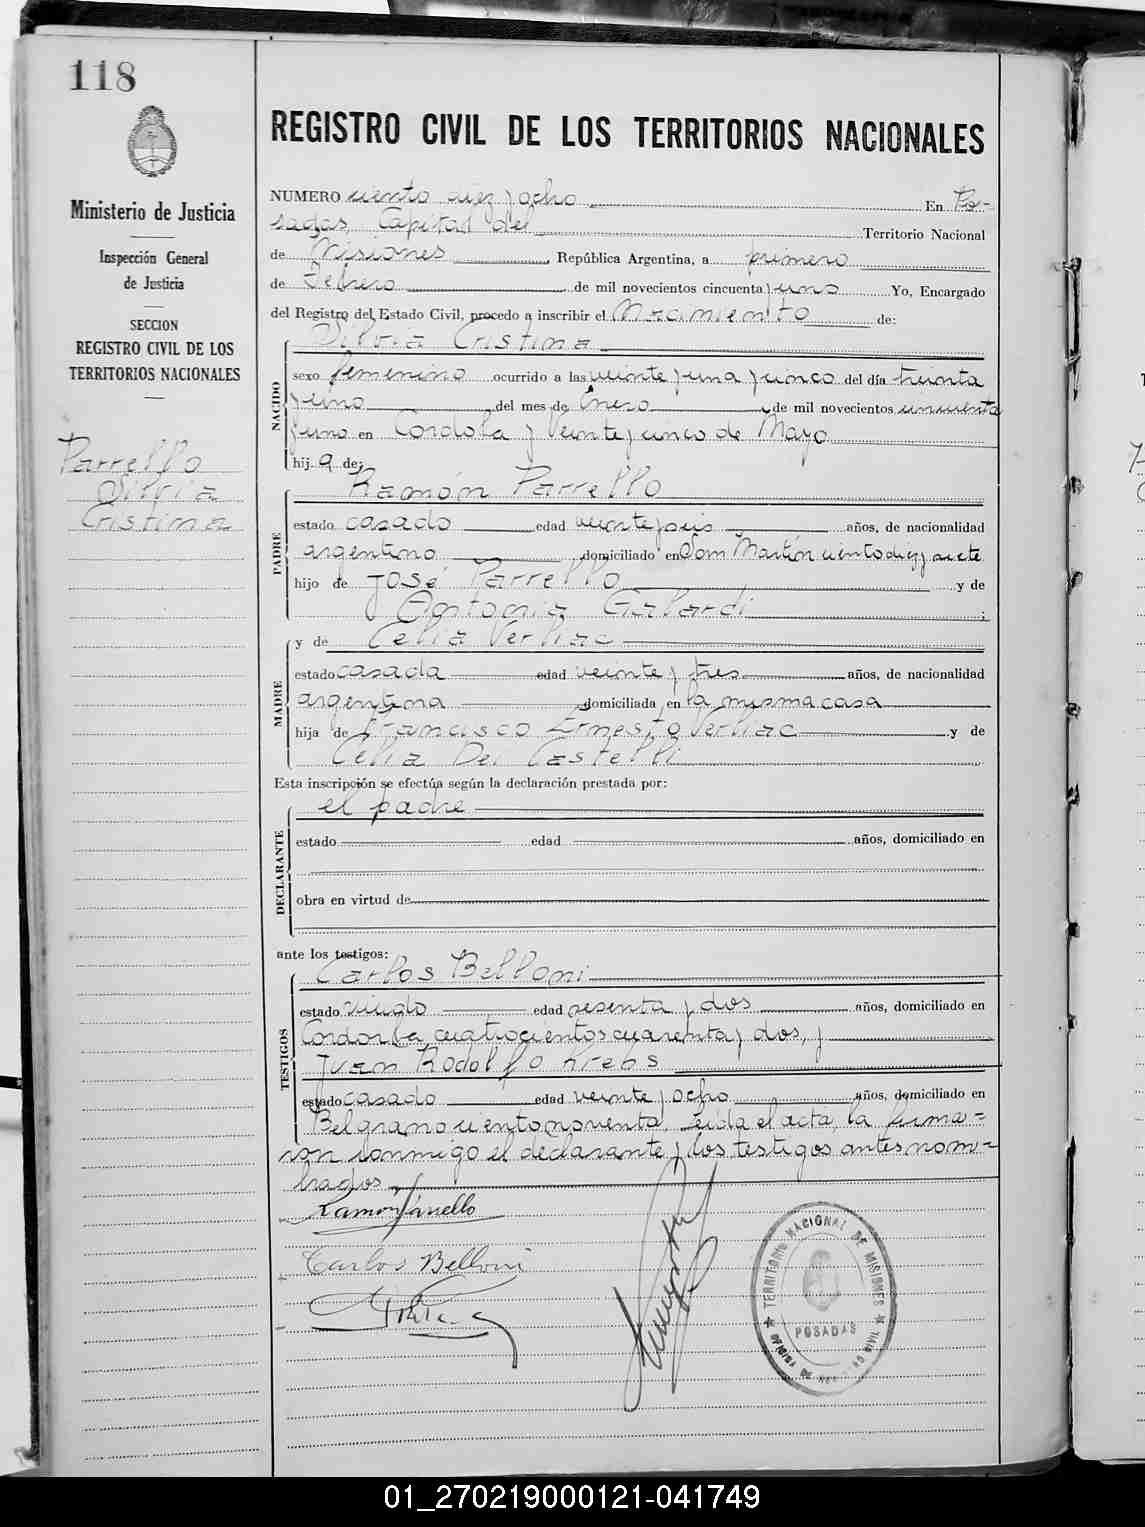 118
Ministerio de Justicia
Inspección General
de Justicia
SECCION
REGISTRO CIVIL DE LOS
TERRITORIOS NACIONALES
Parrello
Silvia
Cristina
REGISTRO CIVIL DE LOS TERRITORIOS NACIONALES
NUMERO ciento diez y ocho En Po-
sadas, Capital del Territorio Nacional
de Misiones, República Argentina, a primero
de Febrero de mil novecientos cincuenta y uno Yo, Encargado
del Registro del Estado Civil, procedo a inscribir el Nacimiento de:
NACIDO
Silvia Cristina
sexo femenino ocurrido a las veinte y una y cinco del día treinta
y uno del mes de Enero de mil novecientos cincuenta
y uno en Córdoba y Veinte y cinco de Mayo
hija de:
PADRE
Ramón Parrello
estado casado edad veinte y seis años, de nacionalidad
argentino domiciliado en San Martín ciento diez y siete
hijo de José Parrello y de
Antonia Galardi;
MADRE
y de Celia Verliac
estado casada edad veinte y tres años, de nacionalidad
argentina domiciliada en la misma casa
hija de Francisco Ernesto Verliac y de
Celia Del Castelli
Esta inscripción se efectúa según la declaración prestada por:
DECLARANTE
el padre
estado edad años, domiciliado en
obra en virtud de
ante los testigos:
TESTIGOS
Carlos Belloni
estado viudo edad sesenta y dos años, domiciliado en
Cordorba cuatrocientos cuarenta y dos, y
Juan Rodolfo Krebs
estado casado edad veinte y ocho años, domiciliado en
Belgrano ciento noventa. Leída el acta, la firma-
ron conmigo el declarante y los testigos antes nom-
brados
Ramón Parrello
Carlos Belloni
TERRITORIO NACIONAL DE MISIONES
POSADAS
01_270219000121-041749